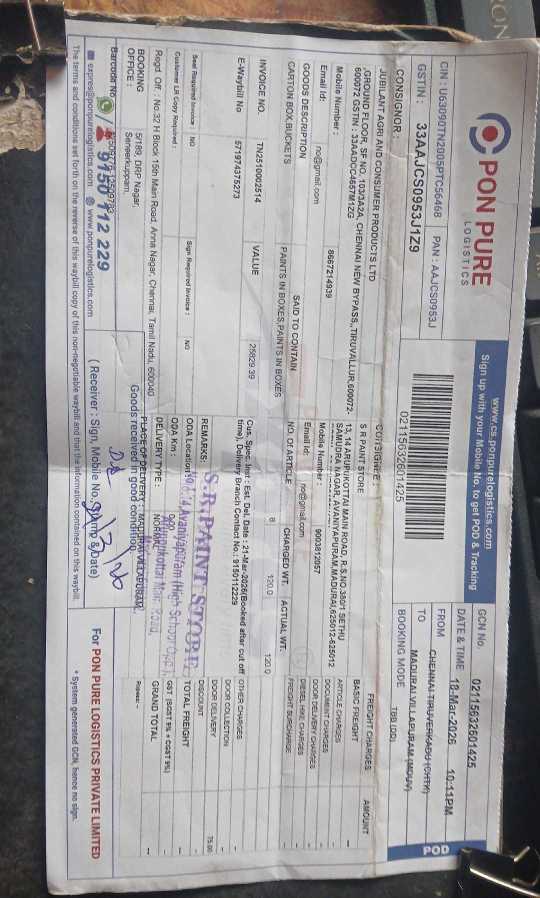 PON PURE
LOGISTICS
www.cs.ponpurelogistics.com
Sign up with your Mobile No. to get POD & Tracking
CIN : U63090TN2005PTC56468 PAN : AAJCS0953J
GSTIN : 33AAJCS0953J1Z9
02115632601425
GCN No. 02115632601425
DATE & TIME 18-Mar-2026 10:11PM
FROM CHENNAI-TIRUVERKADU-(CHTK)
TO MADURAI,VILLAPURAM-(MDUV)
BOOKING MODE TBB (DD)
POD
CONSIGNOR :
JUBILANT AGRI AND CONSUMER PRODUCTS LTD
,GROUND FLOOR, SF NO. 103/3A2A, CHENNAI NEW BYPASS,,TIRUVALLUR,600072-
600072 GSTIN : 33AADCC4657M1ZG
Mobile Number : 8667214939
Email Id: no@gmail.com
CONSIGNEE :
S R PAINT STORE
13, 14 ARUPUKOTTAI MAIN ROAD, R.S.NO.350/1 SETHU
SAMUDRA NAGAR, AVANIYAPURAM,MADURAI,625012-625012
Mobile Number : 9003812057
Email Id: no@gmail.com
GOODS DESCRIPTION SAID TO CONTAIN NO. Of ARTICLE CHARGED WT. ACTUAL WT.
CARTON BOX,BUCKETS PAINTS IN BOXES,PAINTS IN BOXES 8 120.0 120.0
INVOICE NO. TN2510002514 VALUE 25829.39
E-Waybill No 571974375273
Cus. Spec. Inst : Est. Del. Date : 21-Mar-2026(Booked after cut off
time), Delivery Branch Contact No.: 9150112229
FREIGHT CHARGES AMOUNT
BASIC FREIGHT --
ARTICLE CHARGES
DOCUMENT CHARGES
DOOR DELIVERY CHARGES
DIESEL HIKE CHARGES
FREIGHT SURCHARGE
OTHER CHARGES
DOOR COLLECTION
DOOR DELIVERY 75.00
DISCOUNT
TOTAL FREIGHT --
GST (SGST 9% + CGST 9%) --
GRAND TOTAL --
Seal Required Invoice : NO Sign Required Invoice : NO
Customer LR Copy Required :
REMARKS:
S.R.PAINT STORE
Avaniyapuram (High School Opp.)
Main Road,
ODA Location :
ODA Km :
DELIVERY TYPE :
Regd. Off. : No.32 H Block 15th Main Road, Anna Nagar, Chennai, Tamil Nadu, 600040
BOOKING OFFICE : 5/189, DRP Nagar,
Senneerkuppam,
PLACE OF DELIVERY : MADURAI,VILLAPURAM,
Goods received in good condition.
Barcode No
9150 112 229
expres@ponpurelogistics.com www.ponpurelogistics.com
( Receiver : Sign, Mobile No. Stamp & Date)
For PON PURE LOGISTICS PRIVATE LIMITED
The terms and conditions set forth on the reverse of this waybill copy of this non-negotiable waybill and that the information contained on this waybill.
* System generated GCN, hence no sign.